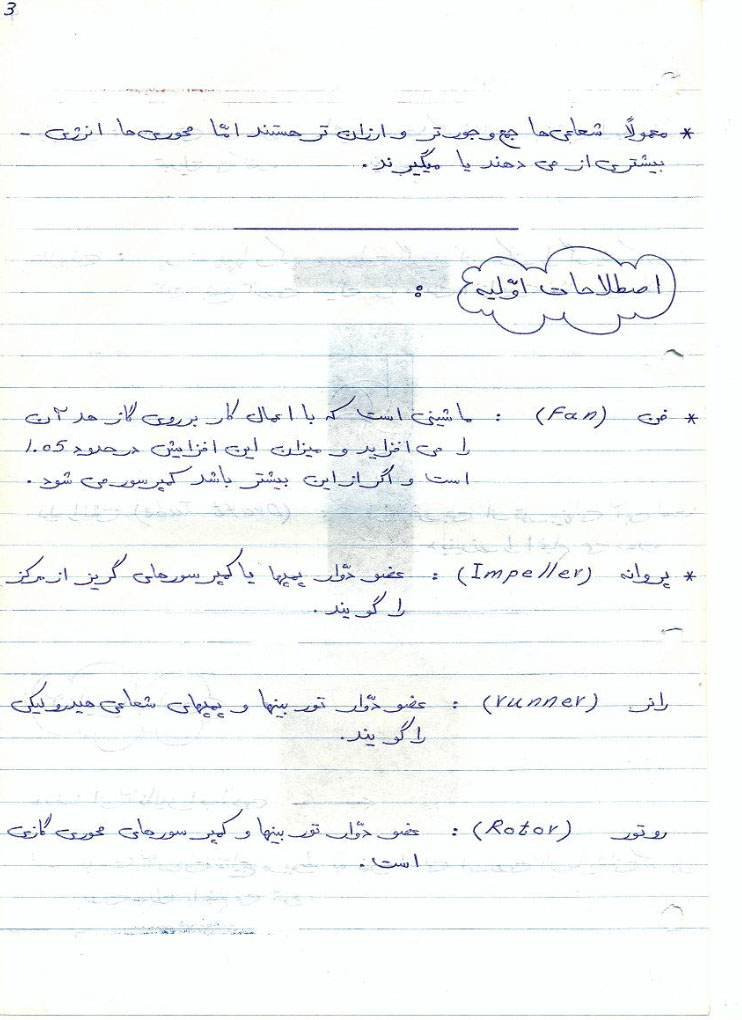 3
* معمولاً شعاعی‌ها جمع و جورتر و ارزان تر هستند امّا محوری‌ها انرژی -
بیشتری از می دهند یا میگیرند.
اصطلاحات اوّلیه :
* فن (Fan) : ماشینی است که با اعمال کار بر روی گاز هد آن
را می افزاید و میزان این افزایش در حدود 1.05
است و اگر از این بیشتر باشد کمپرسور می شود.
* پروانه (Impeller) : عضو دوّار پمپها یا کمپرسورهای گریز از مرکز
را گویند.
رانر (runner) : عضو دوّار توربینها و پمپهای شعاعی هیدرولیکی
را گویند.
روتور (Rotor) : عضو دوّار توربینها و کمپرسورهای محوری گازی
است.